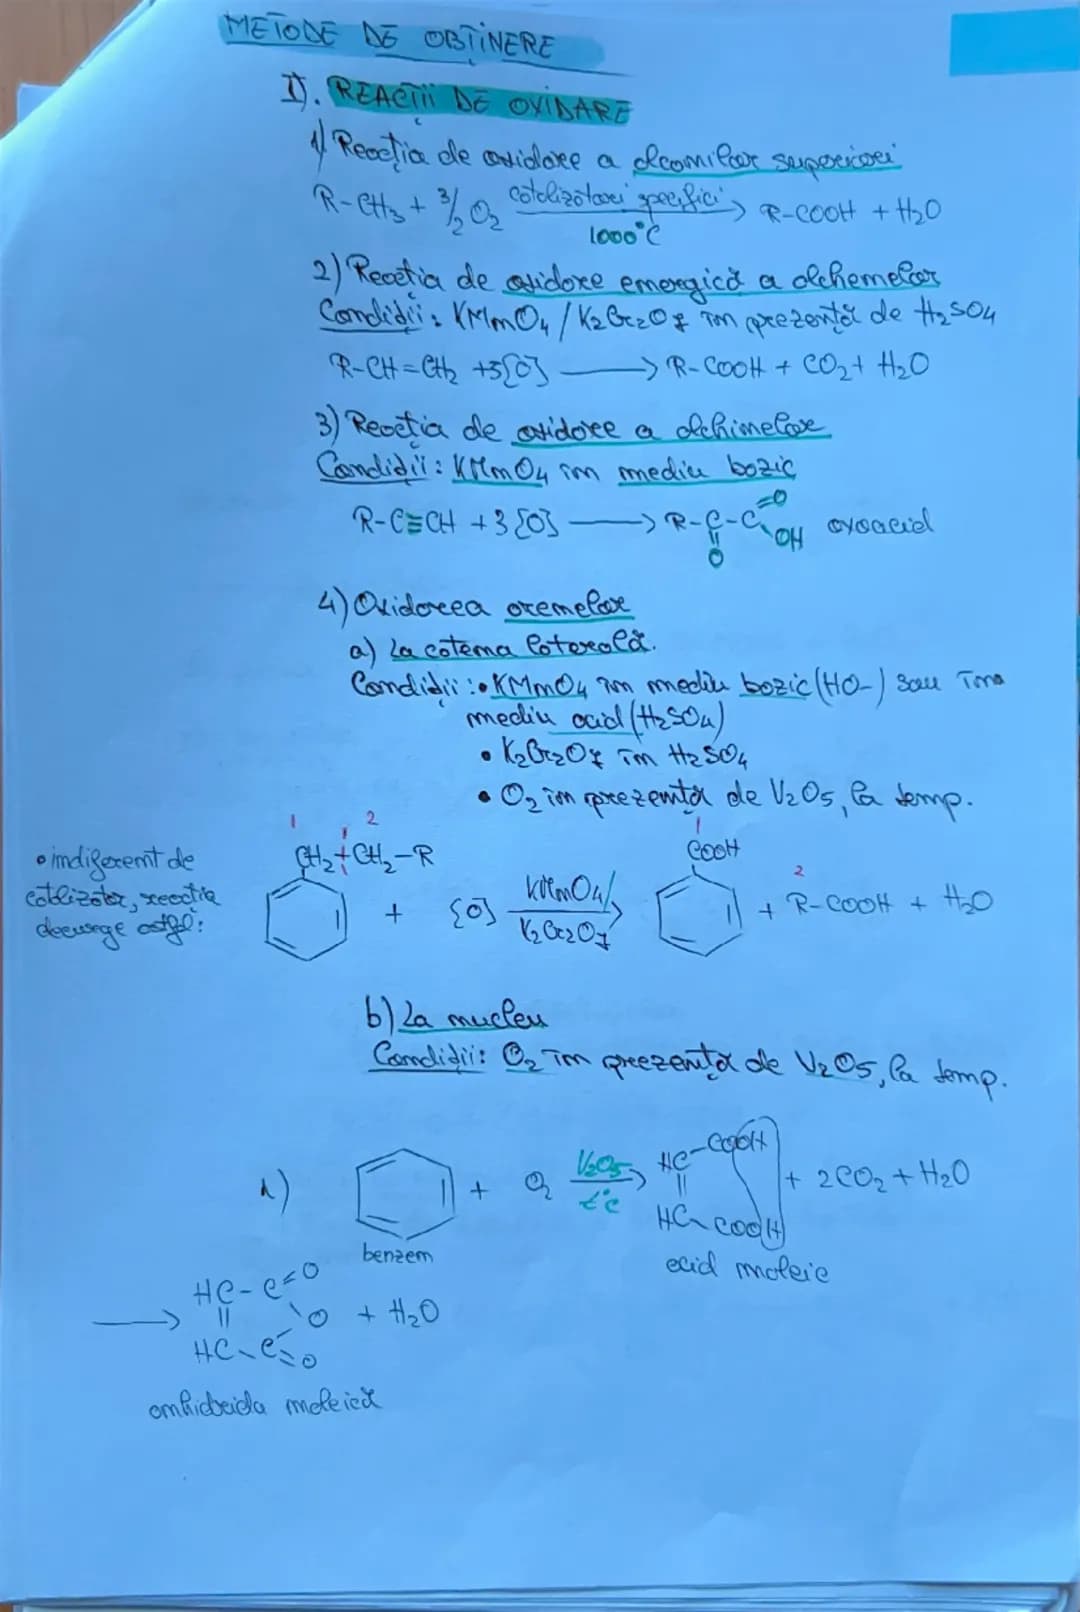 METODE DE OBȚINERE
I). REACȚII DE OXIDARE
1) Reacția de oxidare a alcanilor superiori
R-CH3 + 3/2 O2 catalizatori specifici → R-COOH + H2O
1000°C
2) Reacția de oxidare energică a alchenelor
Condiții: KMnO4 / K2Cr2O7 în prezență de H2SO4
R-CH=CH2 +5[O] → R-COOH + CO2 + H2O
3) Reacția de oxidare a alchinelor
Condiții: KMnO4 în mediu bazic
R-C≡CH + 3[O] → R-C-C =O OH oxoacid
O
4) Oxidarea arenelor
a) La catena laterală.
Condiții: • KMnO4 în mediu bazic (HO-) sau în
mediu acid (H2SO4)
• K2Cr2O7 în H2SO4
• O2 în prezență de V2O5, la temp.
• indiferent de
catlizator, reacția
decurge astfel:
1 2
CH2+CH2-R
+ [O] KMnO4/
K2Cr2O7 →
1
COOH
2
+ R-COOH + H2O
b) La nucleu
Condiții: O2 în prezență de V2O5, la temp.
1) + O2 V2O5 →
t°C
HC-COOH
||
HC-COOH
+ 2CO2 + H2O
benzen
acid maleic
→ HC-C=O
|| O + H2O
HC-C=O
anhidrida maleică